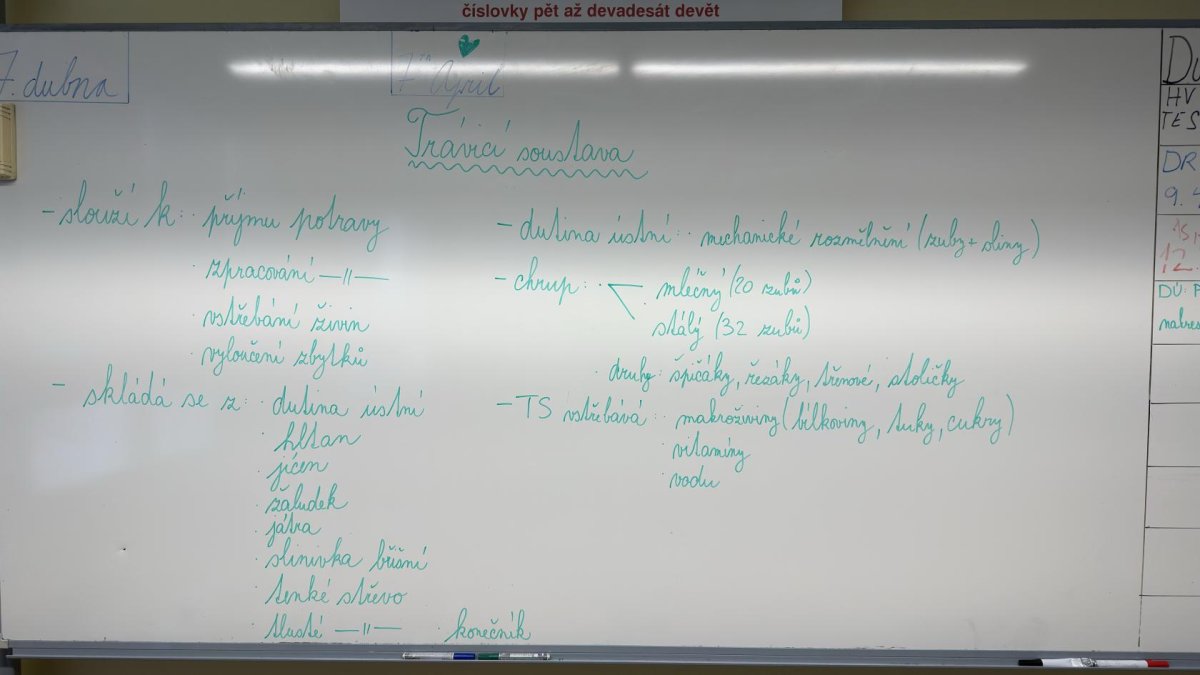 číslovky pět až devadesát devět
7. dubna
7th April
Trávicí soustava
- slouží k: · příjmu potravy
· zpracování —||—
· vstřebání živin
· vyloučení zbytků
- skládá se z: · dutina ústní
· hltan
· jícen
· žaludek
· játra
· slinivka břišní
· tenké střevo
· tlusté —||— · konečník
- dutina ústní: · mechanické rozmělnění (zuby + sliny)
- chrup: · mléčný (20 zubů)
· stálý (32 zubů)
· druhy: špičáky, řezáky, třenové, stoličky
- TS vstřebává: · makroživiny (bílkoviny, tuky, cukry)
· vitamíny
· vodu
HV
TES
DR
9. 4
DÚ: P
nakres